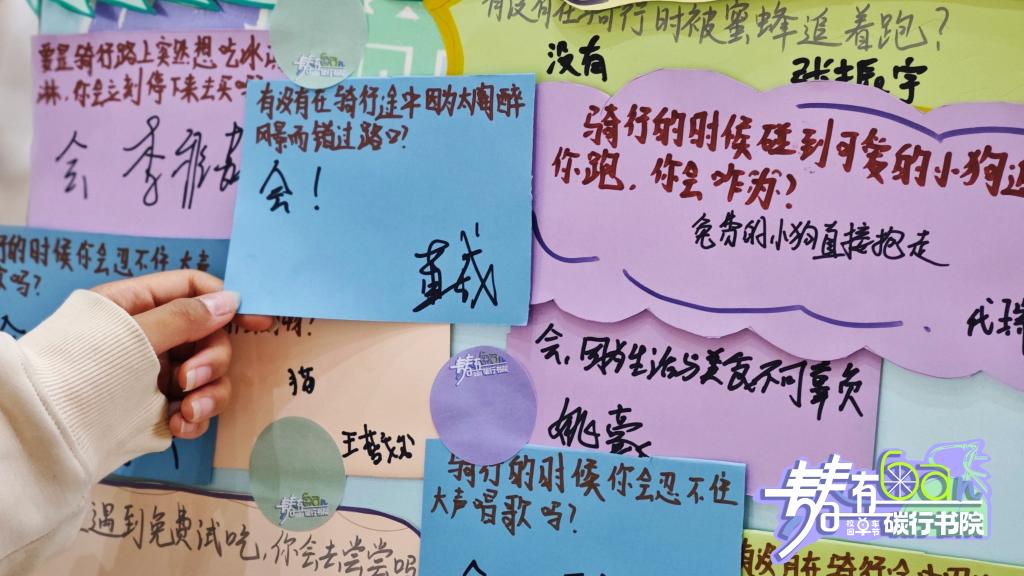 有没有在骑行时被蜜蜂追着跑？
没有
重置骑行路上突然想吃冰淇
淋，你会立刻停下来去买吗
会
有没有在骑行途中因为太陶醉
风景而错过路口？
会！
骑行的时候碰到可爱的小狗追
你跑，你会咋办？
免费的小狗直接抱走
的时候你会忍不住大声
歌吗？
猫
会，因为生活与美食不可辜负
姚豪
骑行的时候你会忍不住
大声唱歌吗？
遇到免费试吃，你会去尝尝吗
有没有在骑行途中
青有
碳行书院